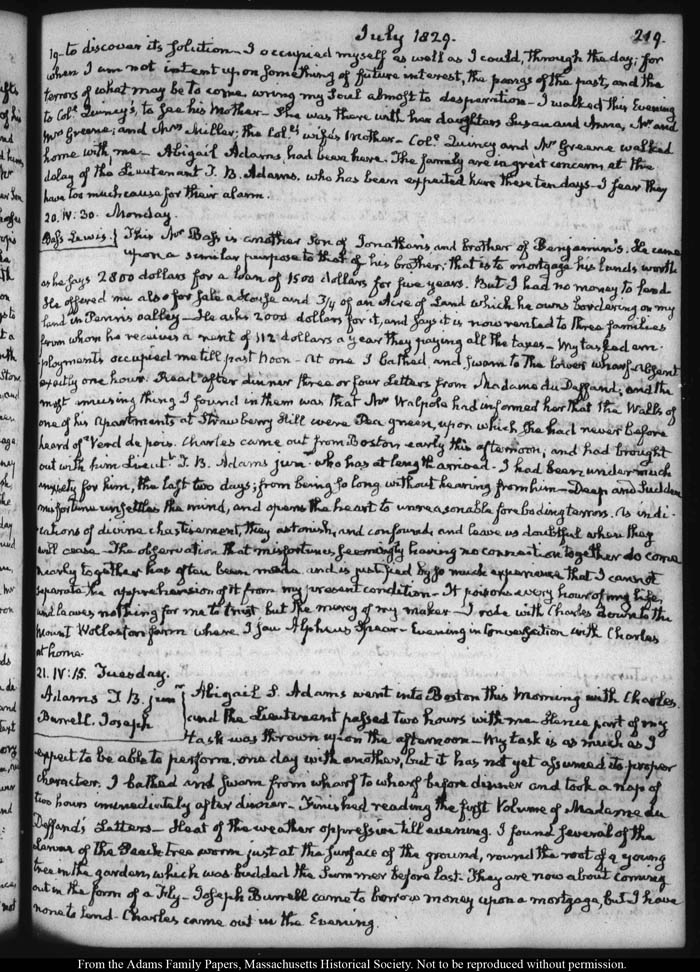 July 1829.
219.
19- to discover its solution- I occupied myself as well as I could, through the day; for
when I am not intent upon something of future interest, the pangs of the past, and the
terrors of what may be to come, wring my Soul almost to desperation- I walked this Evening
to Col.e Quincy's, to see his Mother- She was there with her daughters Susan and Anna, Mr. and
Mrs Greene; and Mrs Miller; the Col.es wife's Mother- Col.e Quincy and Mr Greene walked
home with me- Abigail Adams, had been here. The family are in great concern at the
delay of the Lieutenant J. B. Adams, who has been expected here these ten days- I fear they
have too much cause for their alarm.
20. IV: 30. Monday.
Bass Lewis. } This Mr Bass is another Son of Jonathan's and brother of Benjamin's. He came
upon a similar purpose to that of his brother; that is to mortgage his lands worth
as he says 2800 dollars for a loan of 1500 dollars for five years. But I had no money to lend
He offered me also for sale a House and 3/4 of an Acre of Land which he owns bordering on my
land in Penns valley- He asks 2000 dollars for it, and says it is now rented to three families
from whom he receives a rent of 112 dollars a year they paying all the taxes- My tasked em-
ployments occupied me till past Noon- At one I bathed and swam to the lower wharf- Absent
exactly one hour. Read after dinner three or four Letters from Madame du Deffand; and the
most amusing thing I found in them was that Mr Walpole had informed her that the Walls of
one of his apartments at Strawberry Hill were Pea green, upon which she had never before
heard of Verd de pois. Charles came out from Boston early this afternoon, and had brought
out with him Lieut.t J. B. Adams junr who has at length arrived- I had been under much
anxiety for him, the last two days; from being so long without hearing from him- Deep and Sudden
misfortune unsettles the mind, and opens the heart to unreasonable foreboding terrors. As indi-
cations of divine chastisement, they astonish, and confound, and leave us doubtful when they
will cease- The observation that misfortunes, seemingly having no connection together do come
nearly together has often been made and is justified by so much experience that I cannot
separate the apprehension of it from my present condition- It poisons every hour of my life,
and leaves nothing for me to trust but the mercy of my maker- I rode with Charles down to the
Mount Wollaston farm where I saw Alpheus Spear- Evening in Conversation with Charles
at home.
21. IV: 15. Tuesday.
Adams J. B. junr
Burrell. Joseph
} Abigail S. Adams went into Boston this Morning with Charles.
and the Lieutenant passed two hours with me- Hence part of my
task was thrown upon the afternoon- My task is as much as I
expect to be able to perform, one day with another, but it has not yet assumed its proper
character. I bathed and swam from wharf to wharf before dinner and took a nap of
two hours immediately after dinner- Finished reading the first Volume of Madame du
Deffand's Letters- Heat of the weather oppressive till evening. I found several of the
larvae of the Peach tree worm just at the surface of the ground, round the root of a young
tree in the garden, which was budded the Summer before last. They are now about coming
out in the form of a Fly- Joseph Burrell came to borrow money upon a mortgage, but I have
none to lend- Charles came out in the Evening.
From the Adams Family Papers, Massachusetts Historical Society. Not to be reproduced without permission.